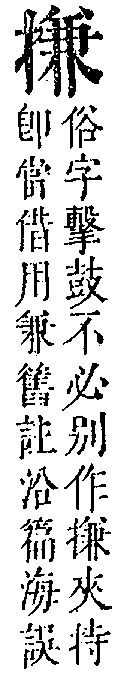 搛
俗字擊鼓不必別作搛夾持
卽當借用兼舊註沿篇海誤